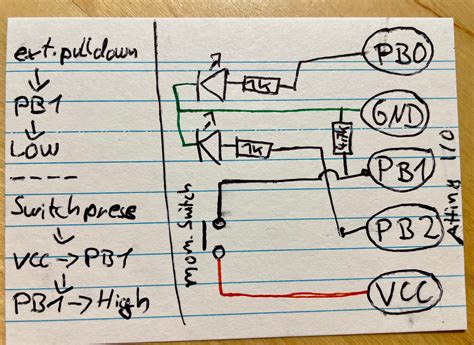 ext. pulldown
↓
PB1
↓
LOW
-----
Switchpress
↓
VCC → PB1
↓
PB1 → High
1k
1k
4.7k
mom. Switch
PB0
GND
PB1
PB2
VCC
Attiny I/O